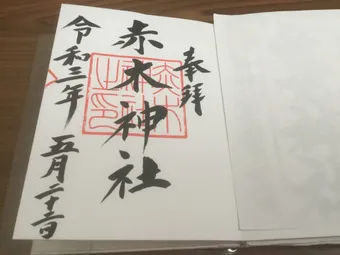 奉拝
赤木神社
令和三年 五月二十三日